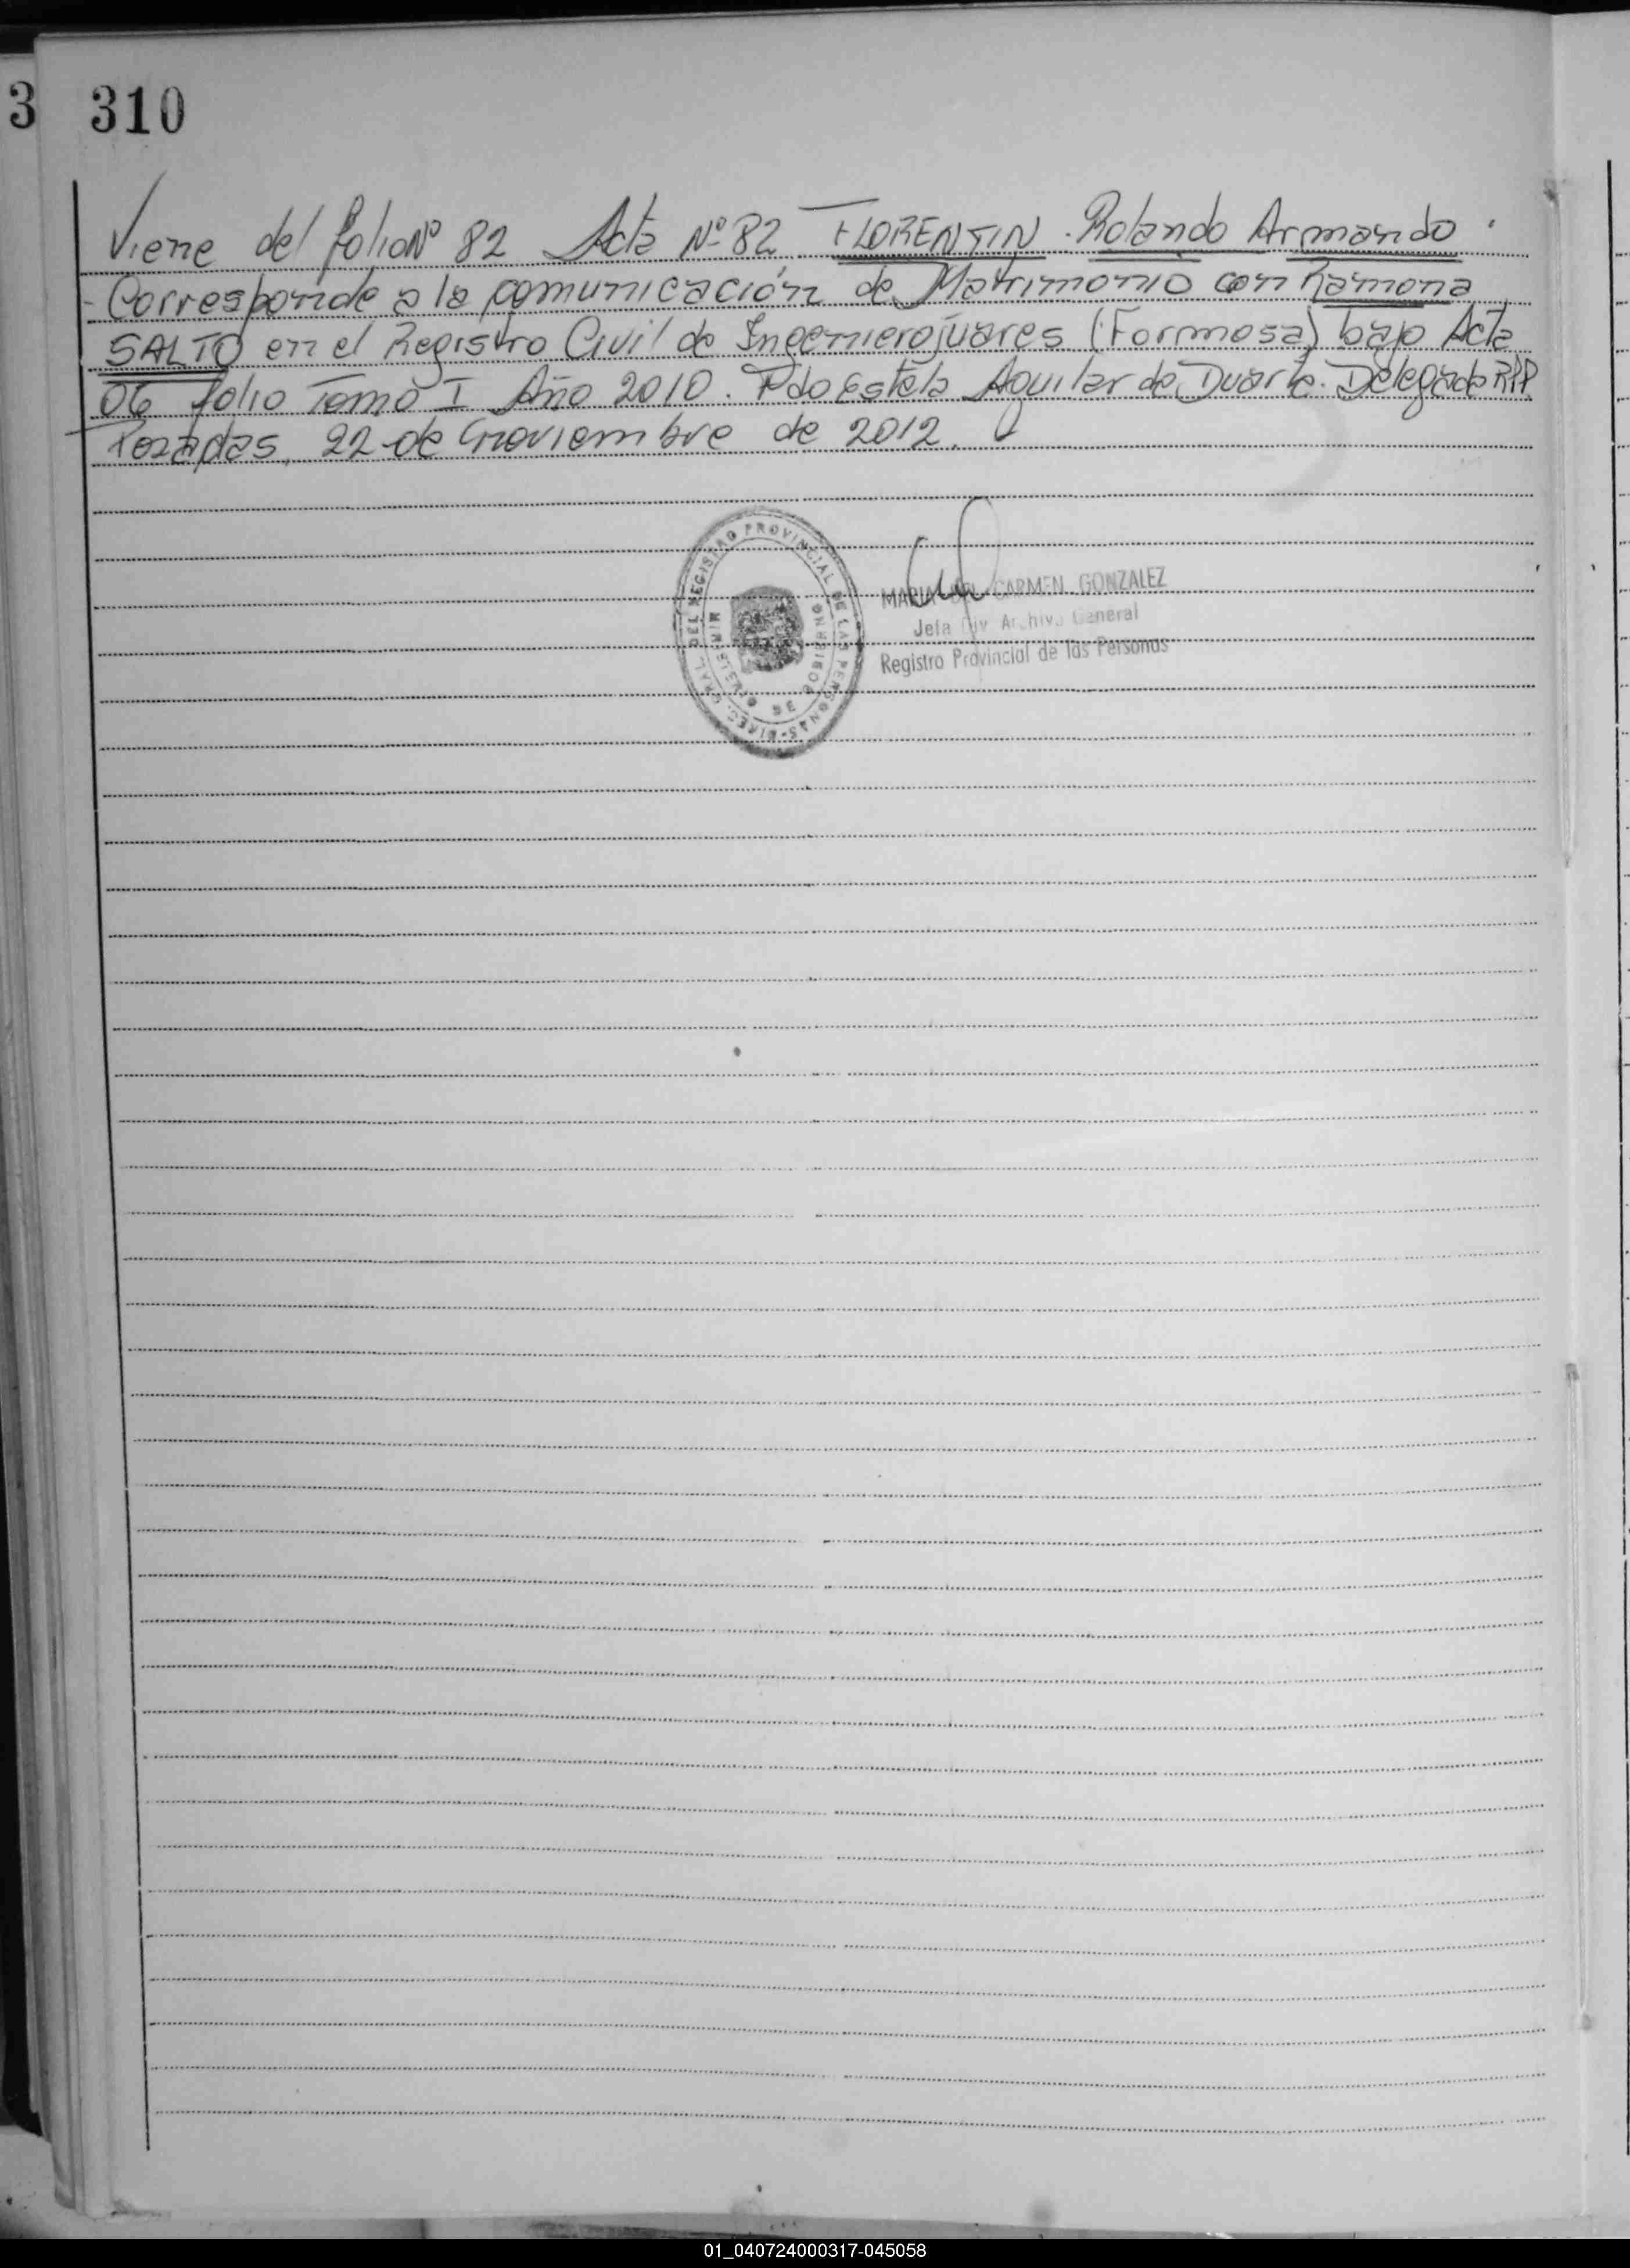 3 310
Viene del folio Nº 82 Acta Nº 82 FLORENTIN. Rolando Armando.
- Corresponde a la comunicación de Matrimonio con Ramona
SALTO en el Registro Civil de Ingenierojuares (Formosa) bajo Acta
06 folio Tomo I Año 2010. Fdo Estela Aguilar de Duarte. Delegada RPP
Posadas, 22 de noviembre de 2012.
DEL REGISTRO PROVINCIAL DE LAS PERSONAS - DIREC. GRAL.
MINISTERIO DE GOBIERNO
MARIA DEL CARMEN GONZALEZ
Jefa Div Archivo General
Registro Provincial de las Personas
01_040724000317-045058